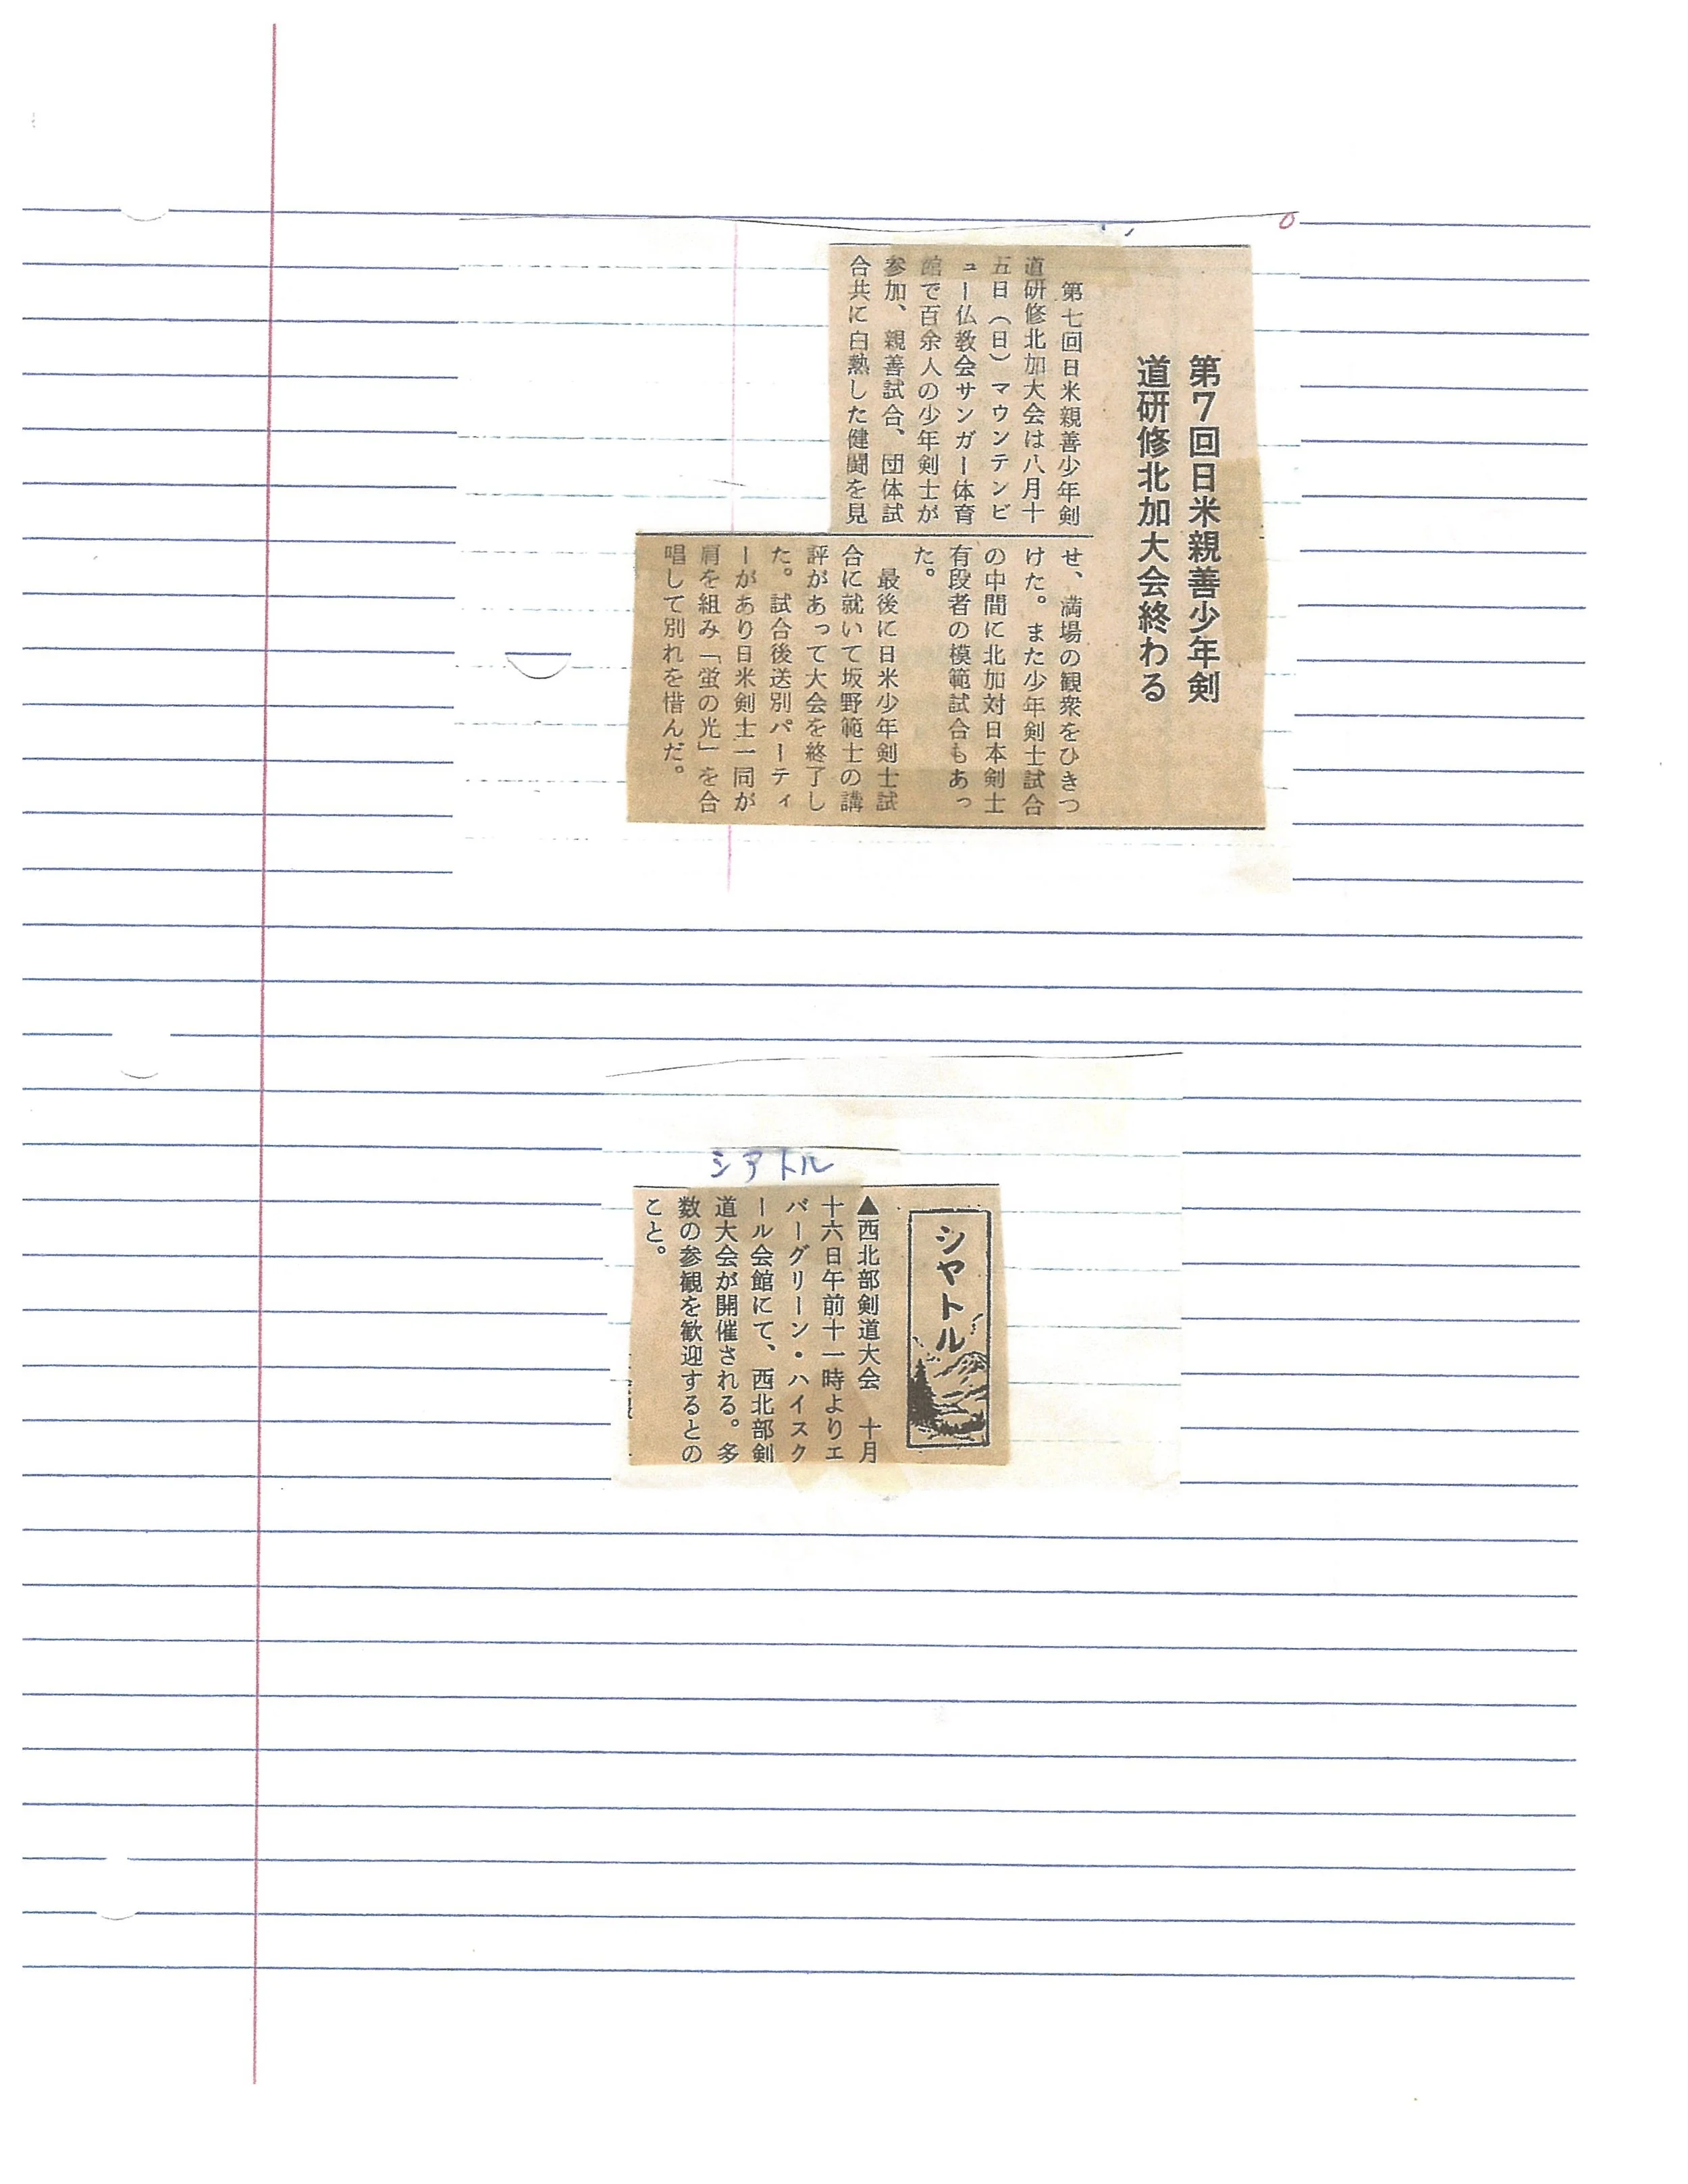 第7回日米親善少年剣
道研修北加大会終わる
第七回日米親善少年剣
道研修北加大会は八月十
五日（日）マウンテンビ
ュー仏教会サンガー体育
館で百余人の少年剣士が
参加、親善試合、団体試
合共に白熱した健闘を見
せ、満場の観衆をひきつ
けた。また少年剣士試合
の中間に北加対日本剣士
有段者の模範試合もあっ
た。
最後に日米少年剣士試
合に就いて坂野範士の講
評があって大会を終了し
た。試合後送別パーティ
ーがあり日米剣士一同が
肩を組み「蛍の光」を合
唱して別れを惜んだ。
シアトル
シヤトル
▲西北部剣道大会　十月
十六日午前十一時よりエ
バーグリーン・ハイスク
ール会館にて、西北部剣
道大会が開催される。多
数の参観を歓迎するとの
こと。